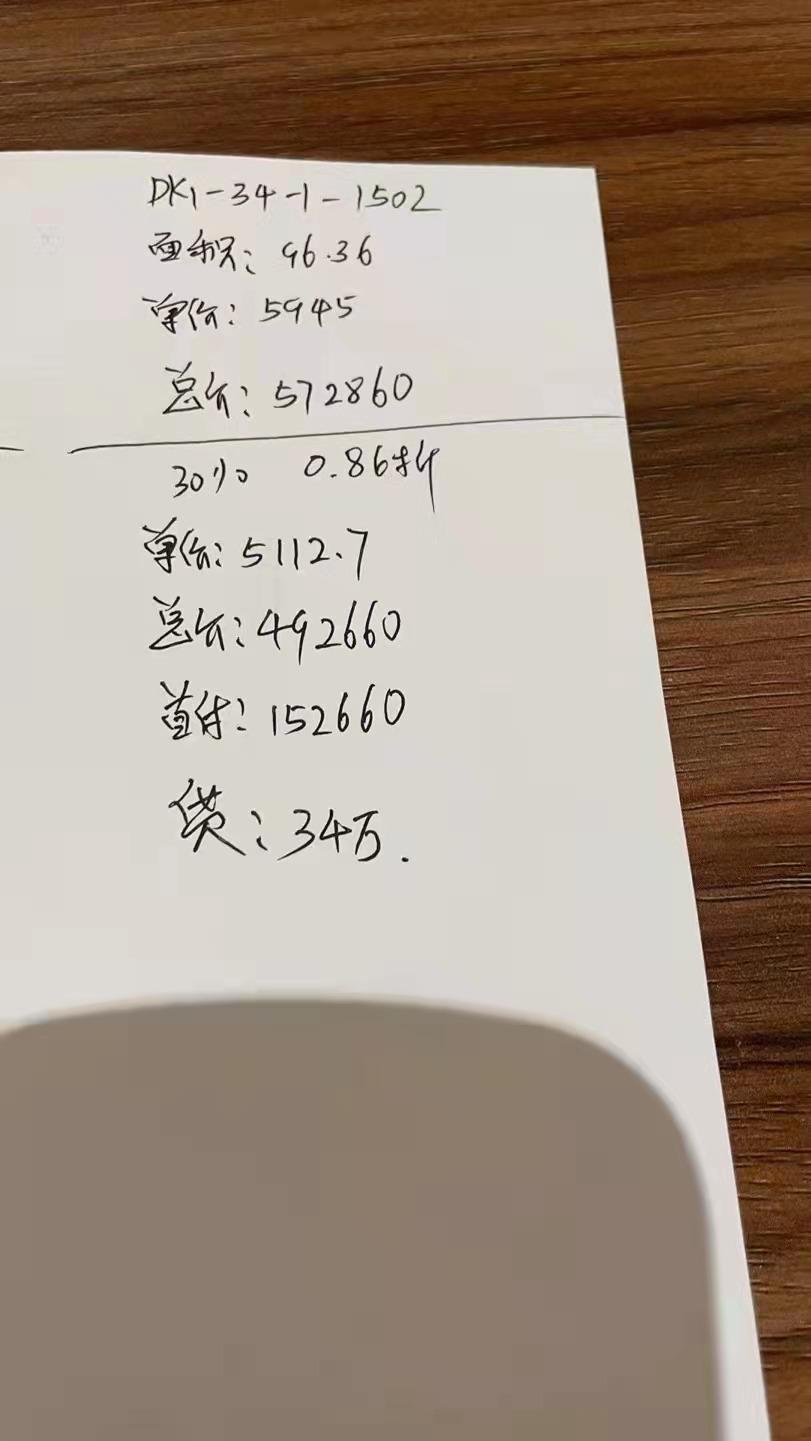 DK1-34-1-1502
面积: 96.36
单价: 5945
总价: 572860
30% 0.86折
单价: 5112.7
总价: 492660
首付: 152660
贷: 34万.